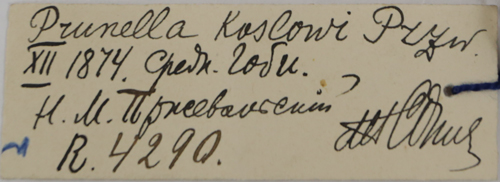 Prunella Koslowi Przw.
XII 1874. Средн. Гоби.
Н. М. Пржевальский
R. 4290.